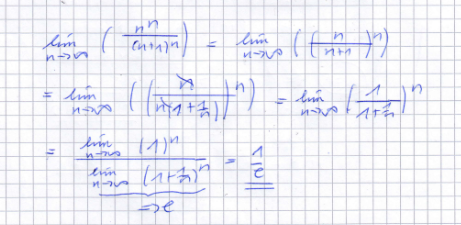 lim n→∞ ( n^n / (n+1)^n ) = lim n→∞ ( ( n / n+1 )^n )
= lim n→∞ ( ( n / n(1+1/n) )^n ) = lim n→∞ ( 1 / 1+1/n )^n
= lim n→∞ (1)^n / lim n→∞ (1+1/n)^n = 1/e
⇒e